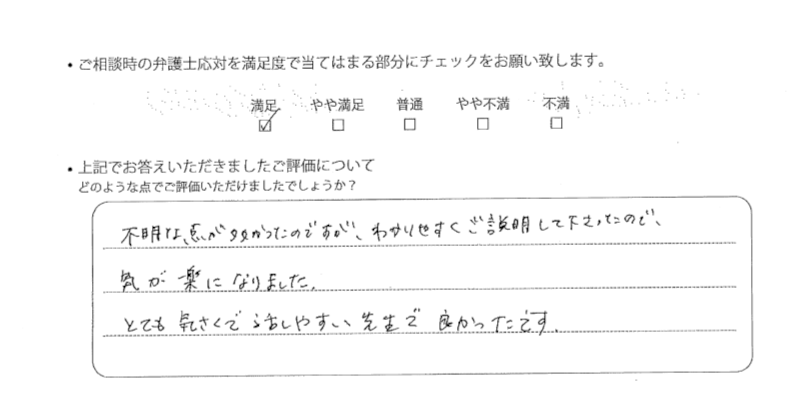 ・ご相談時の弁護士応対を満足度で当てはまる部分にチェックをお願い致します。
満足 やや満足 普通 やや不満 不満
☑ □ □ □ □
・上記でお答えいただきましたご評価について
どのような点でご評価いただけましたでしょうか？
不明な点が多かったのですが、わかりやすくご説明して下さったので、
気が楽になりました。
とても気さくで話しやすい先生で良かったです。